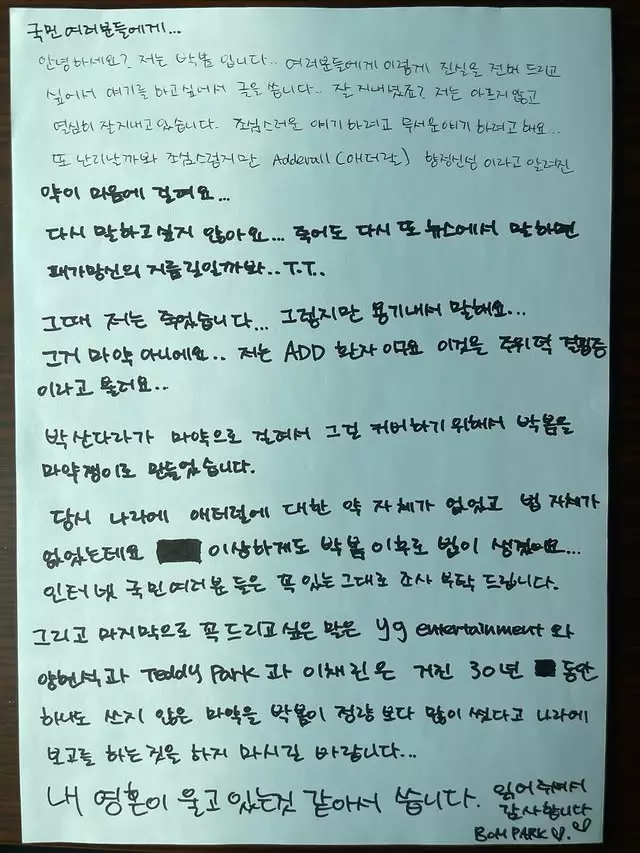 국민 여러분들에게...
안녕하세요? 저는 박봄 입니다.. 여러분들에게 이렇게 진실을 전해 드리고
싶어서 얘기를 하고 싶어서 글을 씁니다.. 잘 지내셨죠? 저는 아프지 않고
열심히 잘 지내고 있습니다. 조심스러운 얘기 하려고 무서운 얘기 하려고 해요...
또 난리날까봐 조심스럽지만 Adderall (애더랄) 향정신성 이라고 알려진
약이 마음에 걸려요...
다시 말하고 싶지 않아요... 죽어도 다시 또 뉴스에서 말하면
패가망신의 지름길일까봐.. T.T..
그때 저는 죽었습니다... 그렇지만 용기내서 말해요...
그거 마약 아니에요.. 저는 ADD 환자 이구요 이것을 주위력 결핍증
이라고 불러요..
박산다라가 마약으로 걸려서 그걸 커버하기 위해서 박봄을
마약쟁이로 만들었습니다.
당시 나라에 애더럴에 대한 약 자체가 없었고 법 자체가
없었는데요 이상하게도 박봄 이후로 법이 생겼어요...
인터넷 국민 여러분 들은 꼭 있는 그대로 조사 부탁 드립니다.
그리고 마지막으로 꼭 드리고 싶은 말은 yg entertainment 와
양현석과 Teddy Park 과 이채린은 거진 30년 동안
하나도 쓰지 않은 마약을 박봄이 정량 보다 많이 썼다고 나라에
보고를 하는 것을 하지 마시길 바랍니다...
내 영혼이 울고 있는것 같아서 씁니다. 읽어 주셔서
감사합니다
BOM PARK ♡.♡